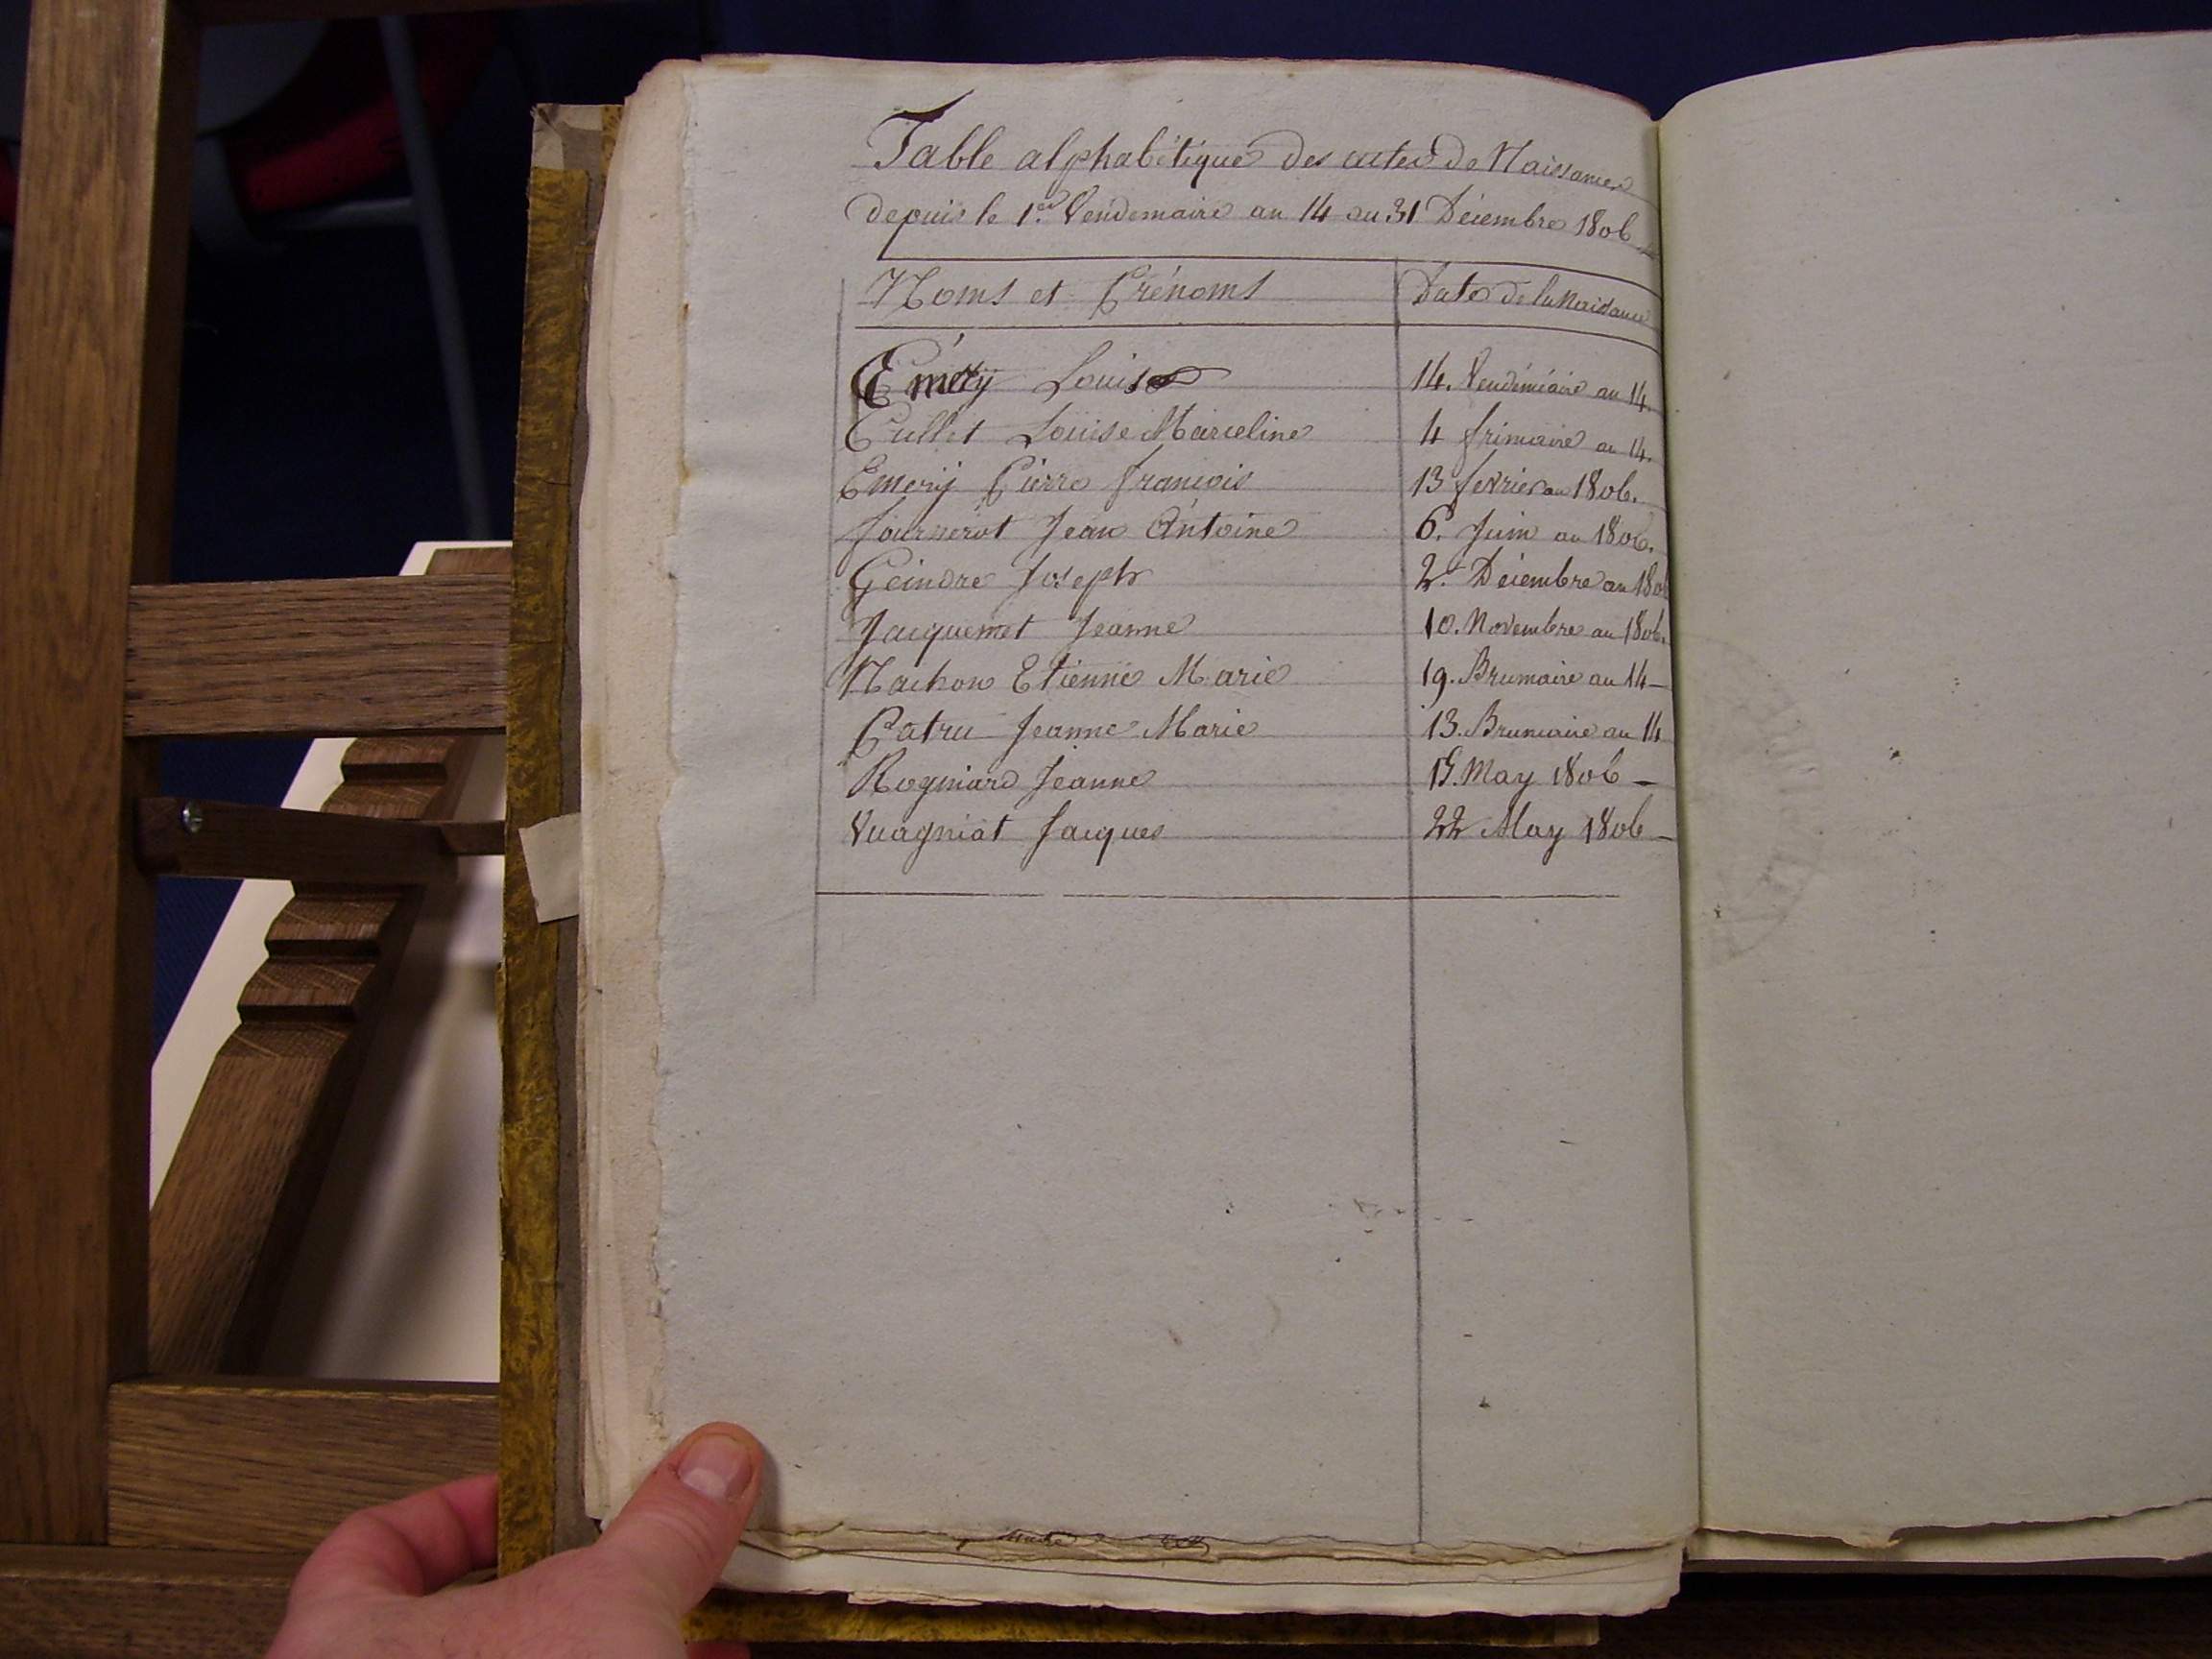 Table alphabétique des actes de Naissances
depuis le 1.er Vendemaire an 14 au 31 Décembre 1806
Noms et Prénoms Date de la Naissance
Eméry Louis 14. Vendémiaire an 14.
Cullet Louise Marceline 4 frimaire an 14.
Emerÿ Pierre francois 13 fevrier an 1806.
fournerot Jean Antoine 6. Juin an 1806.
Geindre Joseph 2. Décembre an 1806
Jacquemet Jeanne 10. Novembre an 1806.
Nachon Etienne Marie 19. Brumaire an 14 -
Patru Jeanne Marie 13. Brumaire an 14
Rogniard Jeanne May 1806 -
Vuagniat Jacques 22 May 1806 -